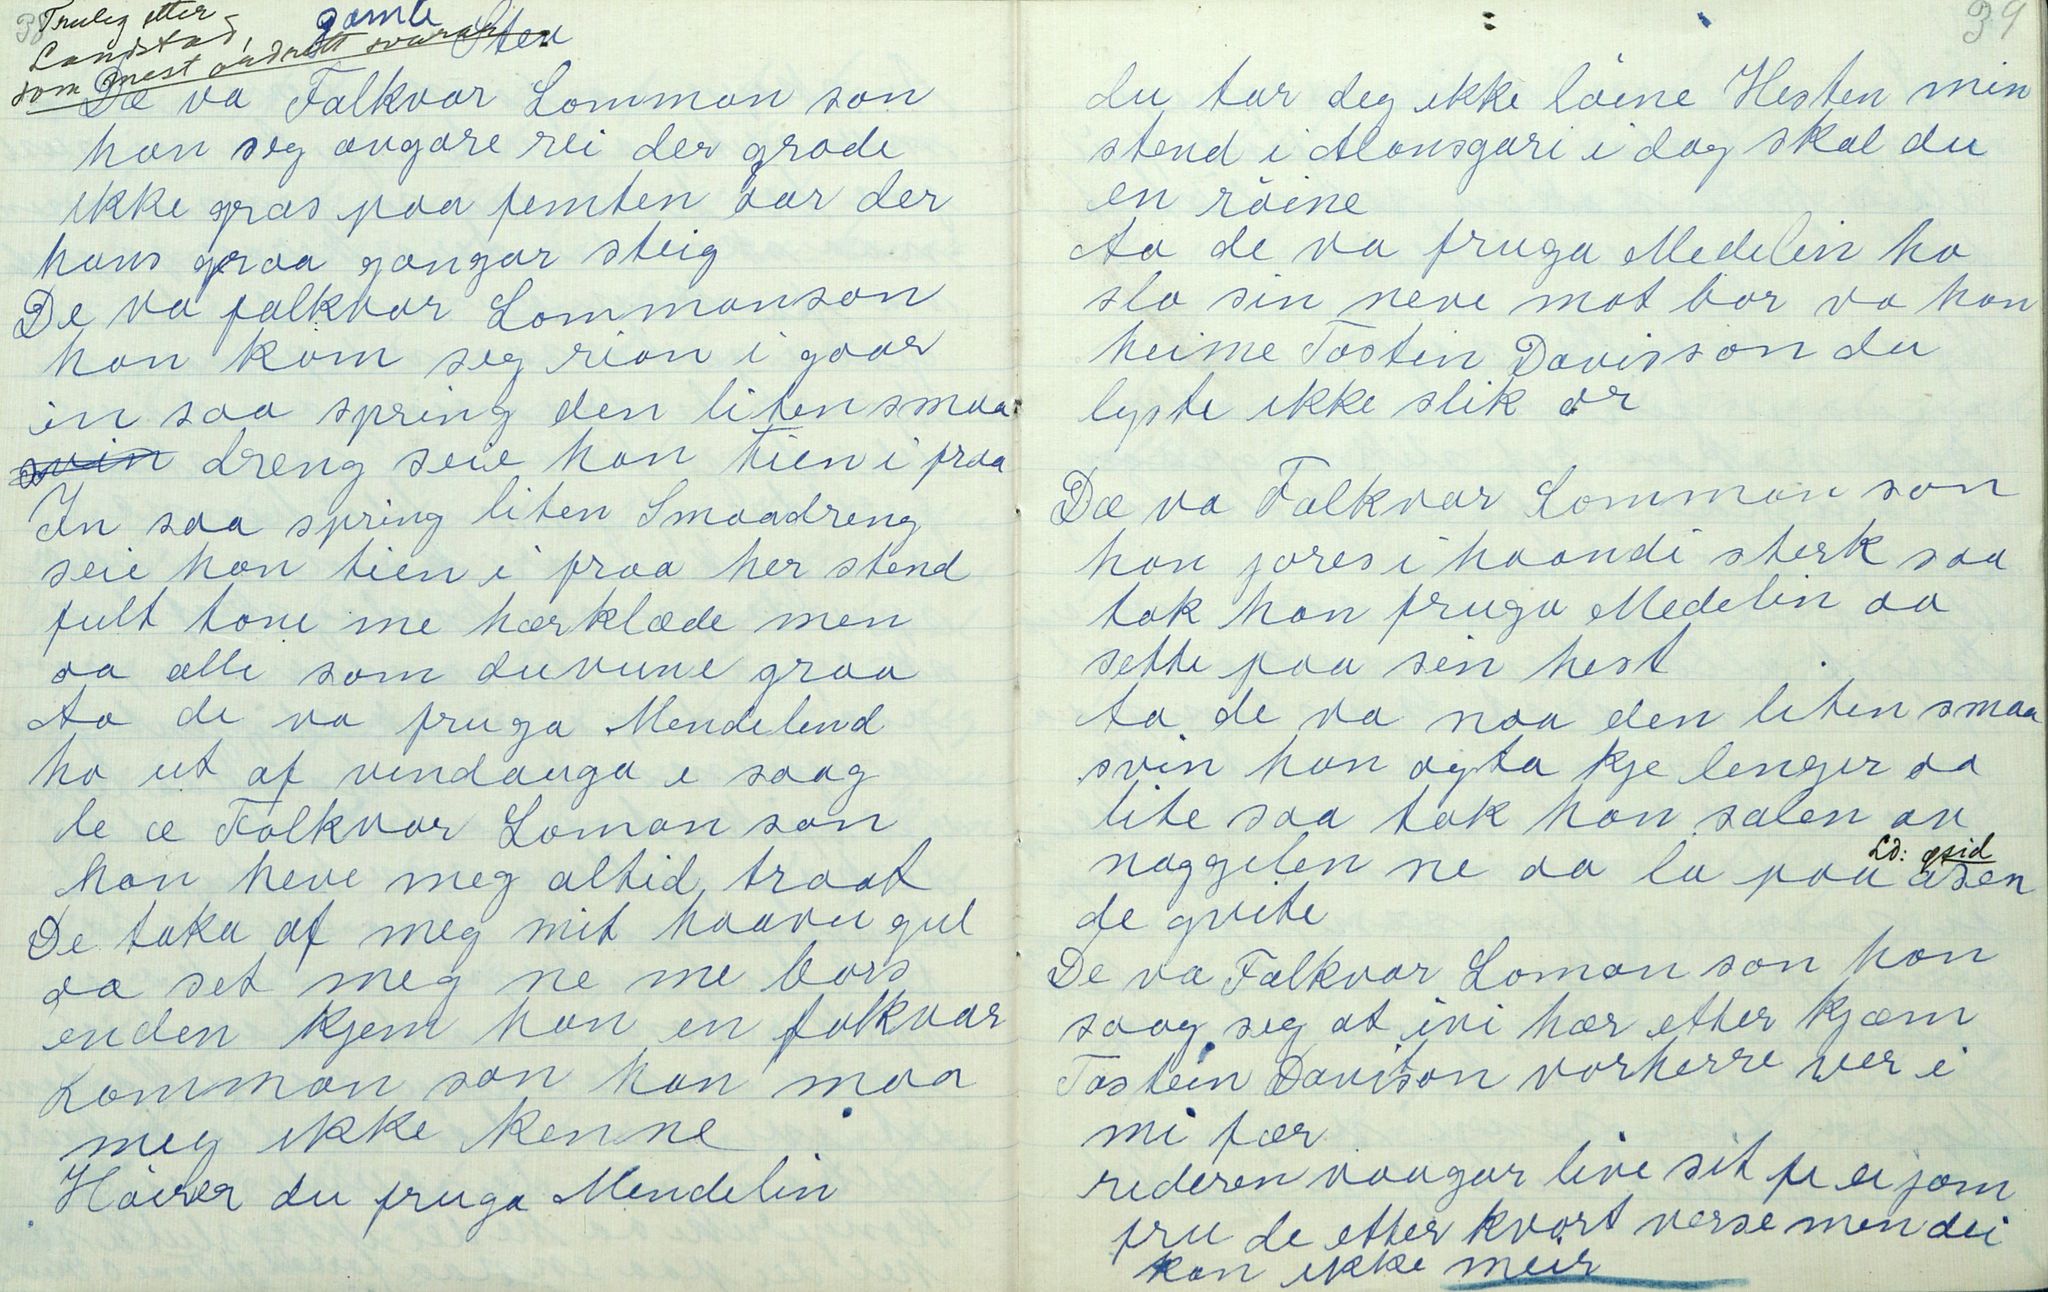 38
Truleg etter
Landstad,
som mest ordrett svarar.
gamle
Stev
Dæ va Falkvar Lomman son
han seg avgare rei der grode
ikke gras paa femten aar der
hans graa gangar steig
De va falkvar Lommanson
han kom seg rian i gaar
in saa spring den liten smaa
svin dreng seie han tien i fraa
In saa spring liten Smaadreng
seie han tien i fraa her stend
fult tone me hærklæde men
aa alli som duvune graa
Aa de va fruga Mendelend
ho ut af vindauga i saag
le æ Falkvar Loman son
han heve meg altid traat
De taka af meg mit haavu gul
aa set meg ne me bors
enden kjem han en falkvar
Lomman son han maa
meg ikke kenne
Höirer du fruga Mendelin
39
du tar deg ikke löine Hesten min
stend i Alonsgari i dag skal du
en röine
Aa de va fruga Medelin ho
slo sin neve mot bor va han
heime Tostin Davisson du
lyste ikke slik or
Dæ va Falkvar Lomman son
han jores i haandi sterk saa
tok han fruga Medelin aa
sette paa sin hest
ta de va naa den liten smaa
svin han agta kje lenger aa
lite saa tok han salen av
naggelen ne aa la paa asen
Ld: gsid
de gvite
De va Falkvar Loman son han
saag seg at ivi hær etter kjæm
Tostein Davitson vorherre ver i
mi fær
rederen vaagar live sit fu ei jom
fru de etter kvart verse men dei
kan ikke meir